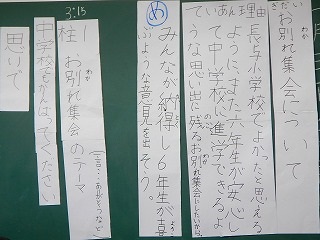 だいお別れ集会について
理由長与小学校でよかったと思える
ように、また六年生が安心し
て中学校に進学できるよ
うな思い出に残るお別れ集会にしたいから
め
みんなが納得し6年生が喜
ぶような意見を出そう。
3:15
柱1お別れ集会のテーマ
(言言…ありがとうなど)
中学校をがんばってください
思いで